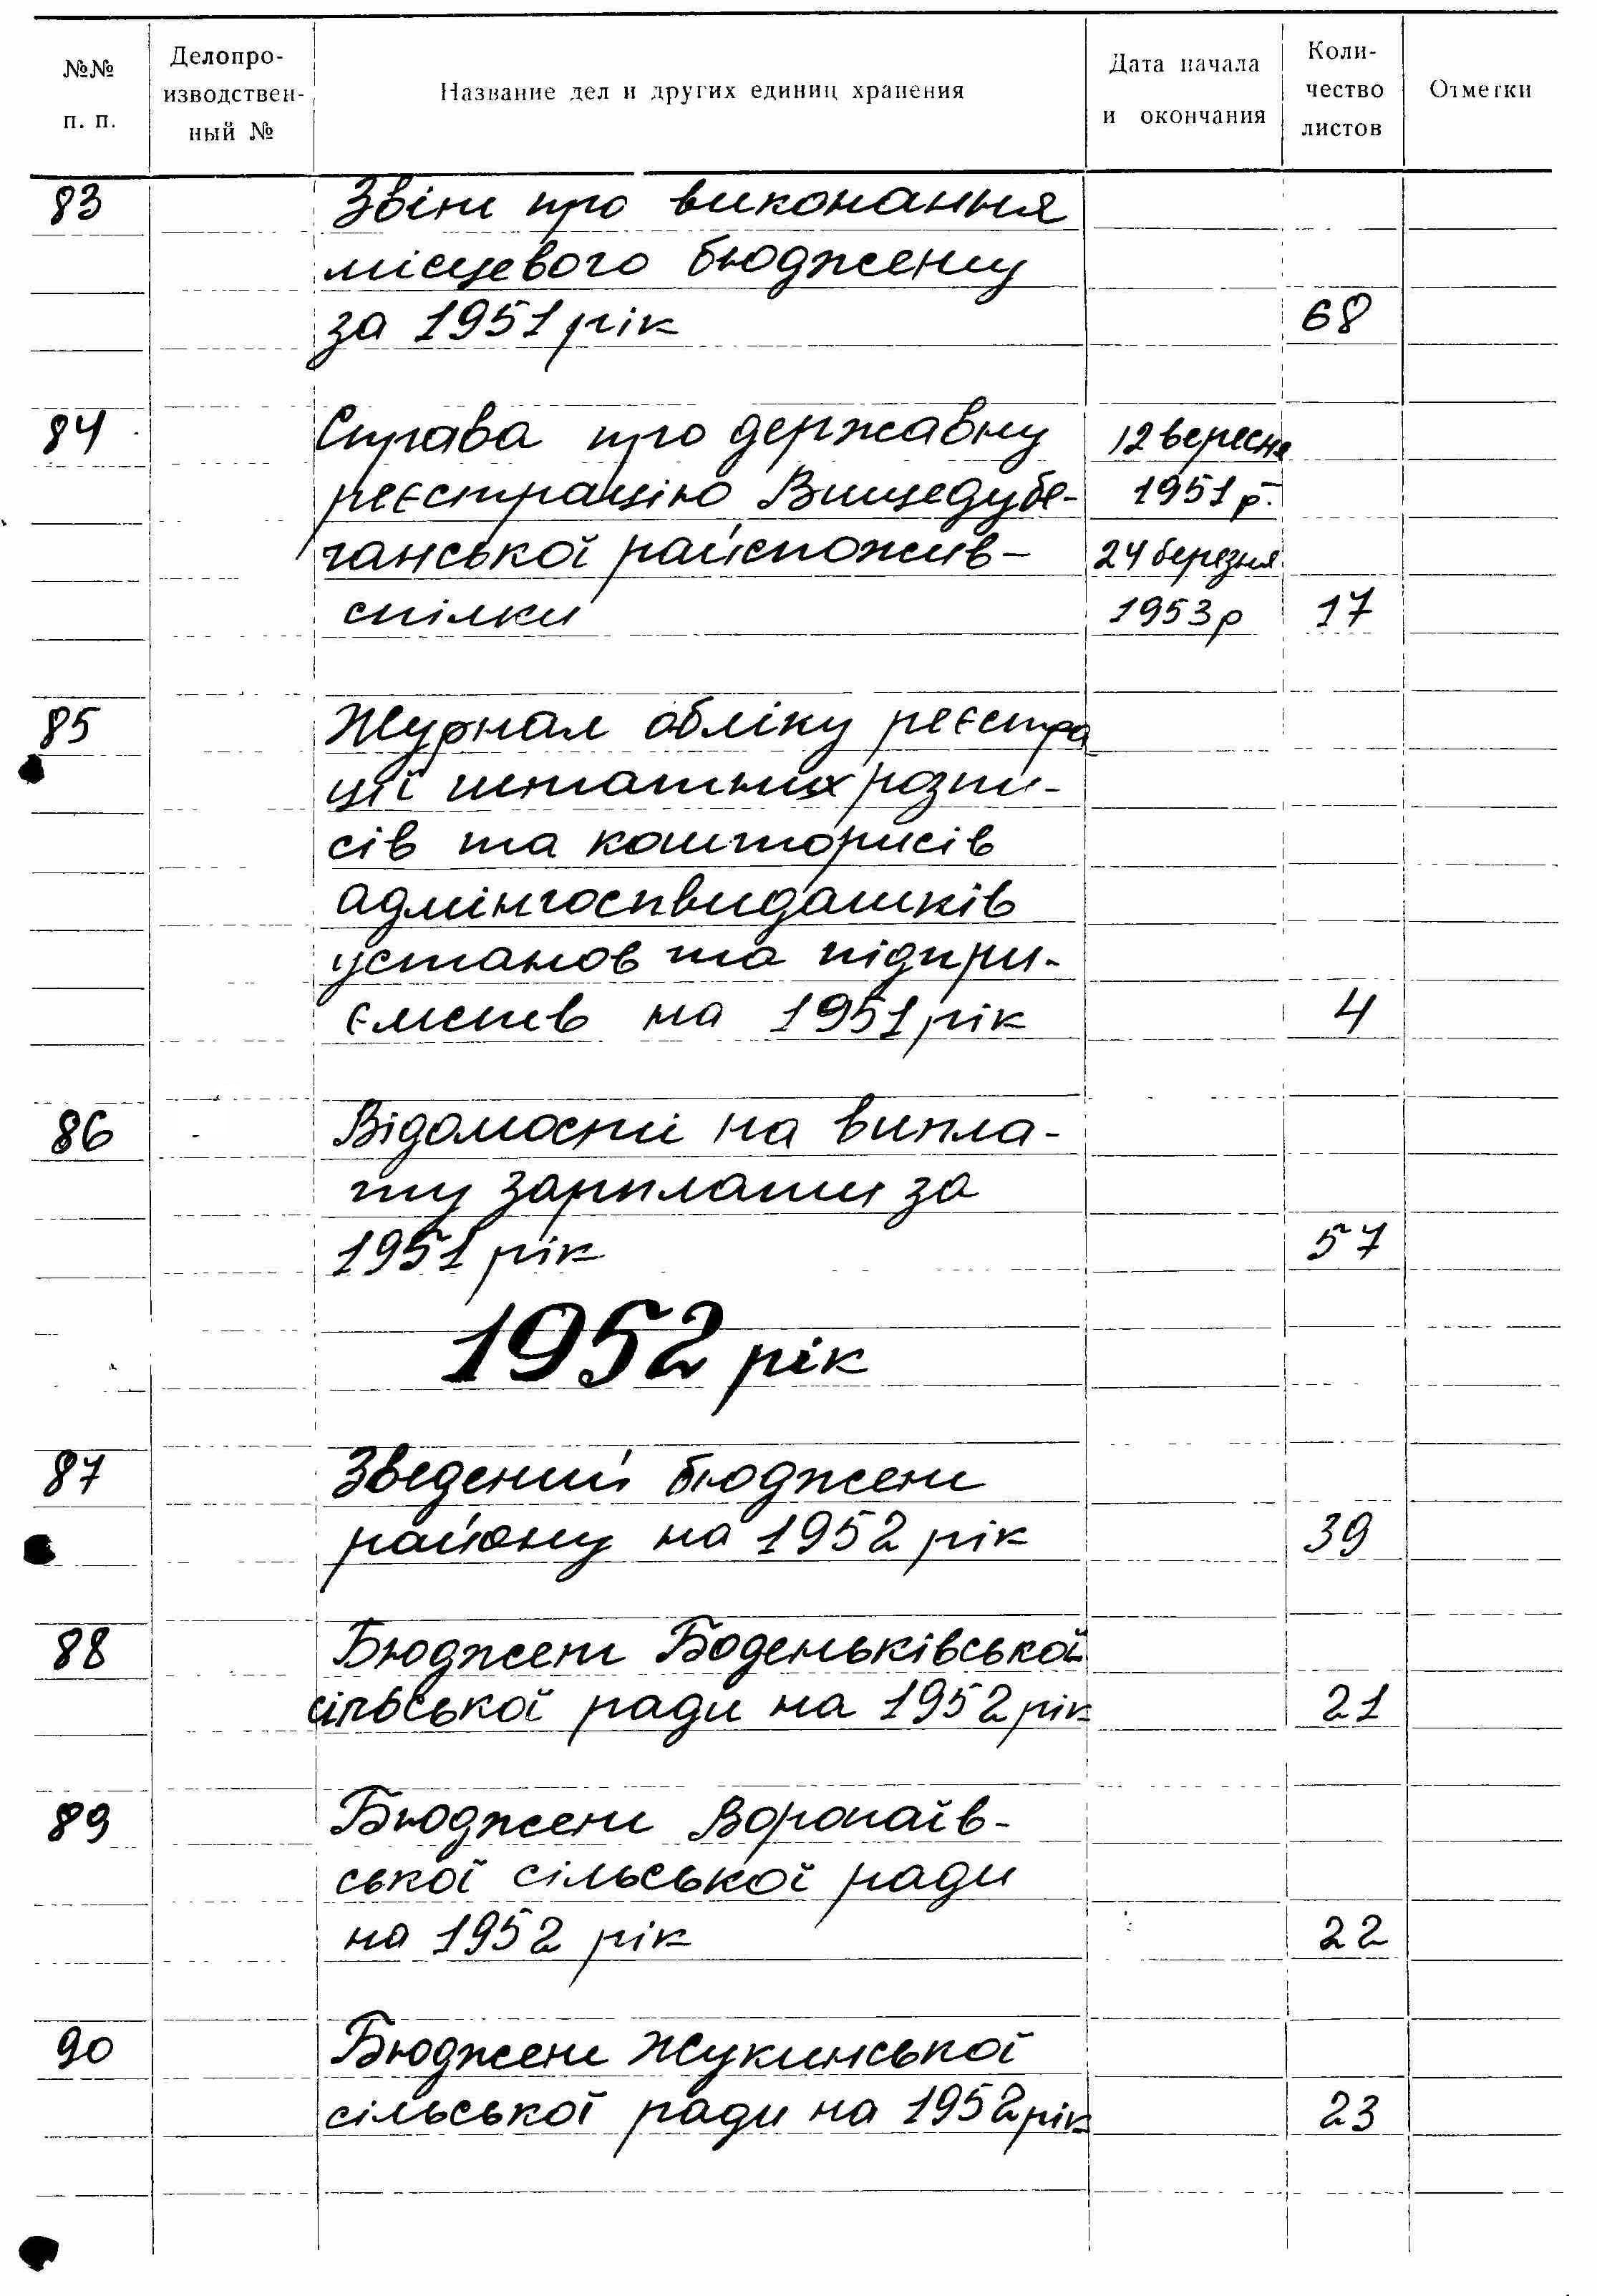 №№ п. п.
Делопро-
изводствен-
ный №
Название дел и других единиц хранения
Дата начала
и окончания
Коли-
чество
листов
Отметки
83 Звіт про виконання
місцевого бюджету
за 1951 рік 68
84 Справа про державну 12 вересня
реєстрацію Вищедубе- 1951 р.
чанської райспожив- 24 березня
спілки 1953 р 17
85 Журнал обліку реєстра
ції штатних розпи-
сів та кошторисів
адмінгоспвидатків
установ та підпри-
ємств на 1951 рік 4
86 Відомості на випла-
ту зарплати за
1951 рік 57
1952 рік
87 Зведений бюджет
району на 1952 рік 39
88 Бюджет Боденьківської
сільської ради на 1952 рік 21
89 Бюджет Воропаїв-
ської сільської ради
на 1952 рік 22
90 Бюджет Жукинської
сільської ради на 1952 рік 23